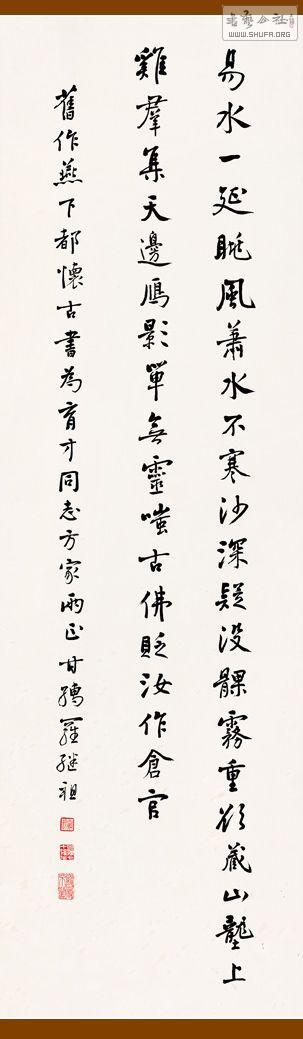 易水一延眺風蕭水不寒沙深疑没髁霧重欲藏山壟上
雞群集天邊鴈影單無靈嗤古佛貶汝作倉官
舊作燕下都懷古書為育才同志方家兩正甘孺羅繼祖
WWW.SHUFA.ORG